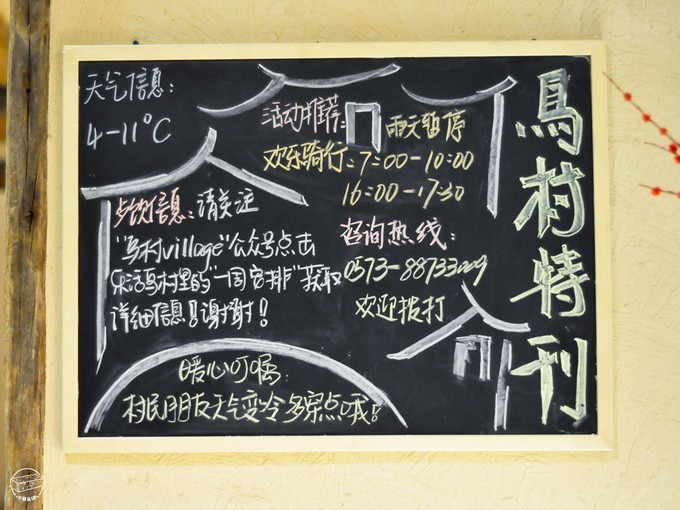 天气信息:
4-11℃
活动推荐:
雨天暂停
欢乐骑行:7:00-10:00
16:00-17:30
活动信息:请关注
"乌村village"公众号点击
乐活乌村里的"一周安排"获取
详细信息!谢谢!
咨询热线:
0573-88733009
欢迎拨打
暖心叮嘱:
村民朋友天气变冷多穿点哦!
乌村特刊